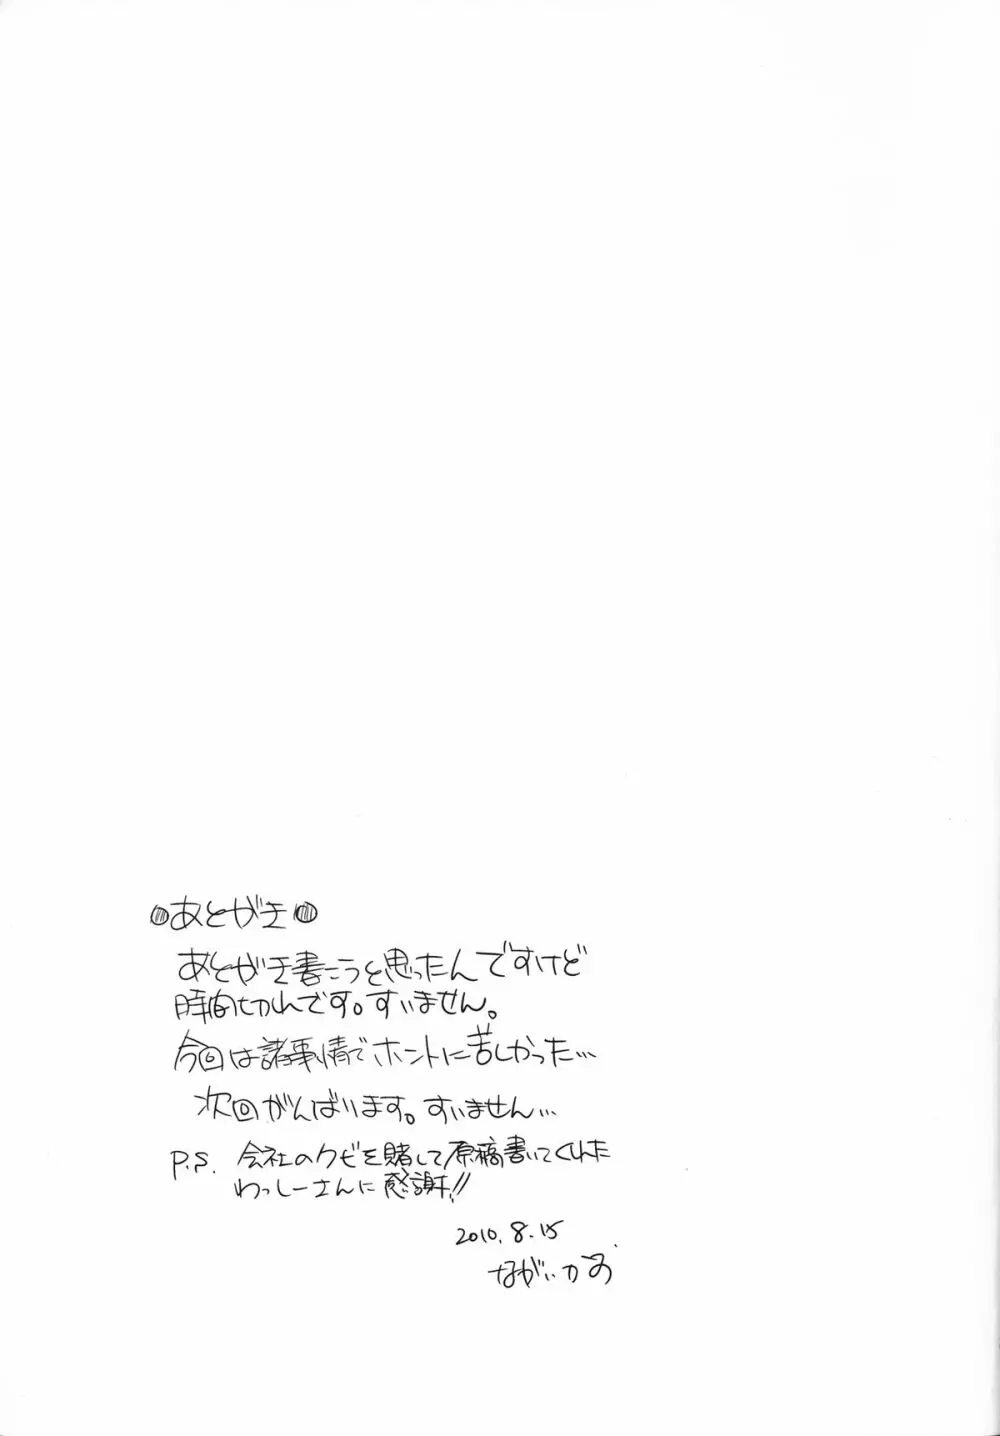 ●あとがき●
あとがき書こうと思ったんですけど
時間切れです。すいません。
今回は諸事情でホントに苦しかった…
次回がんばります。すいません…
P.S. 会社のクビを賭して原稿書いてくれた
わっしーさんに感謝!!
2010.8.15
ながいかお